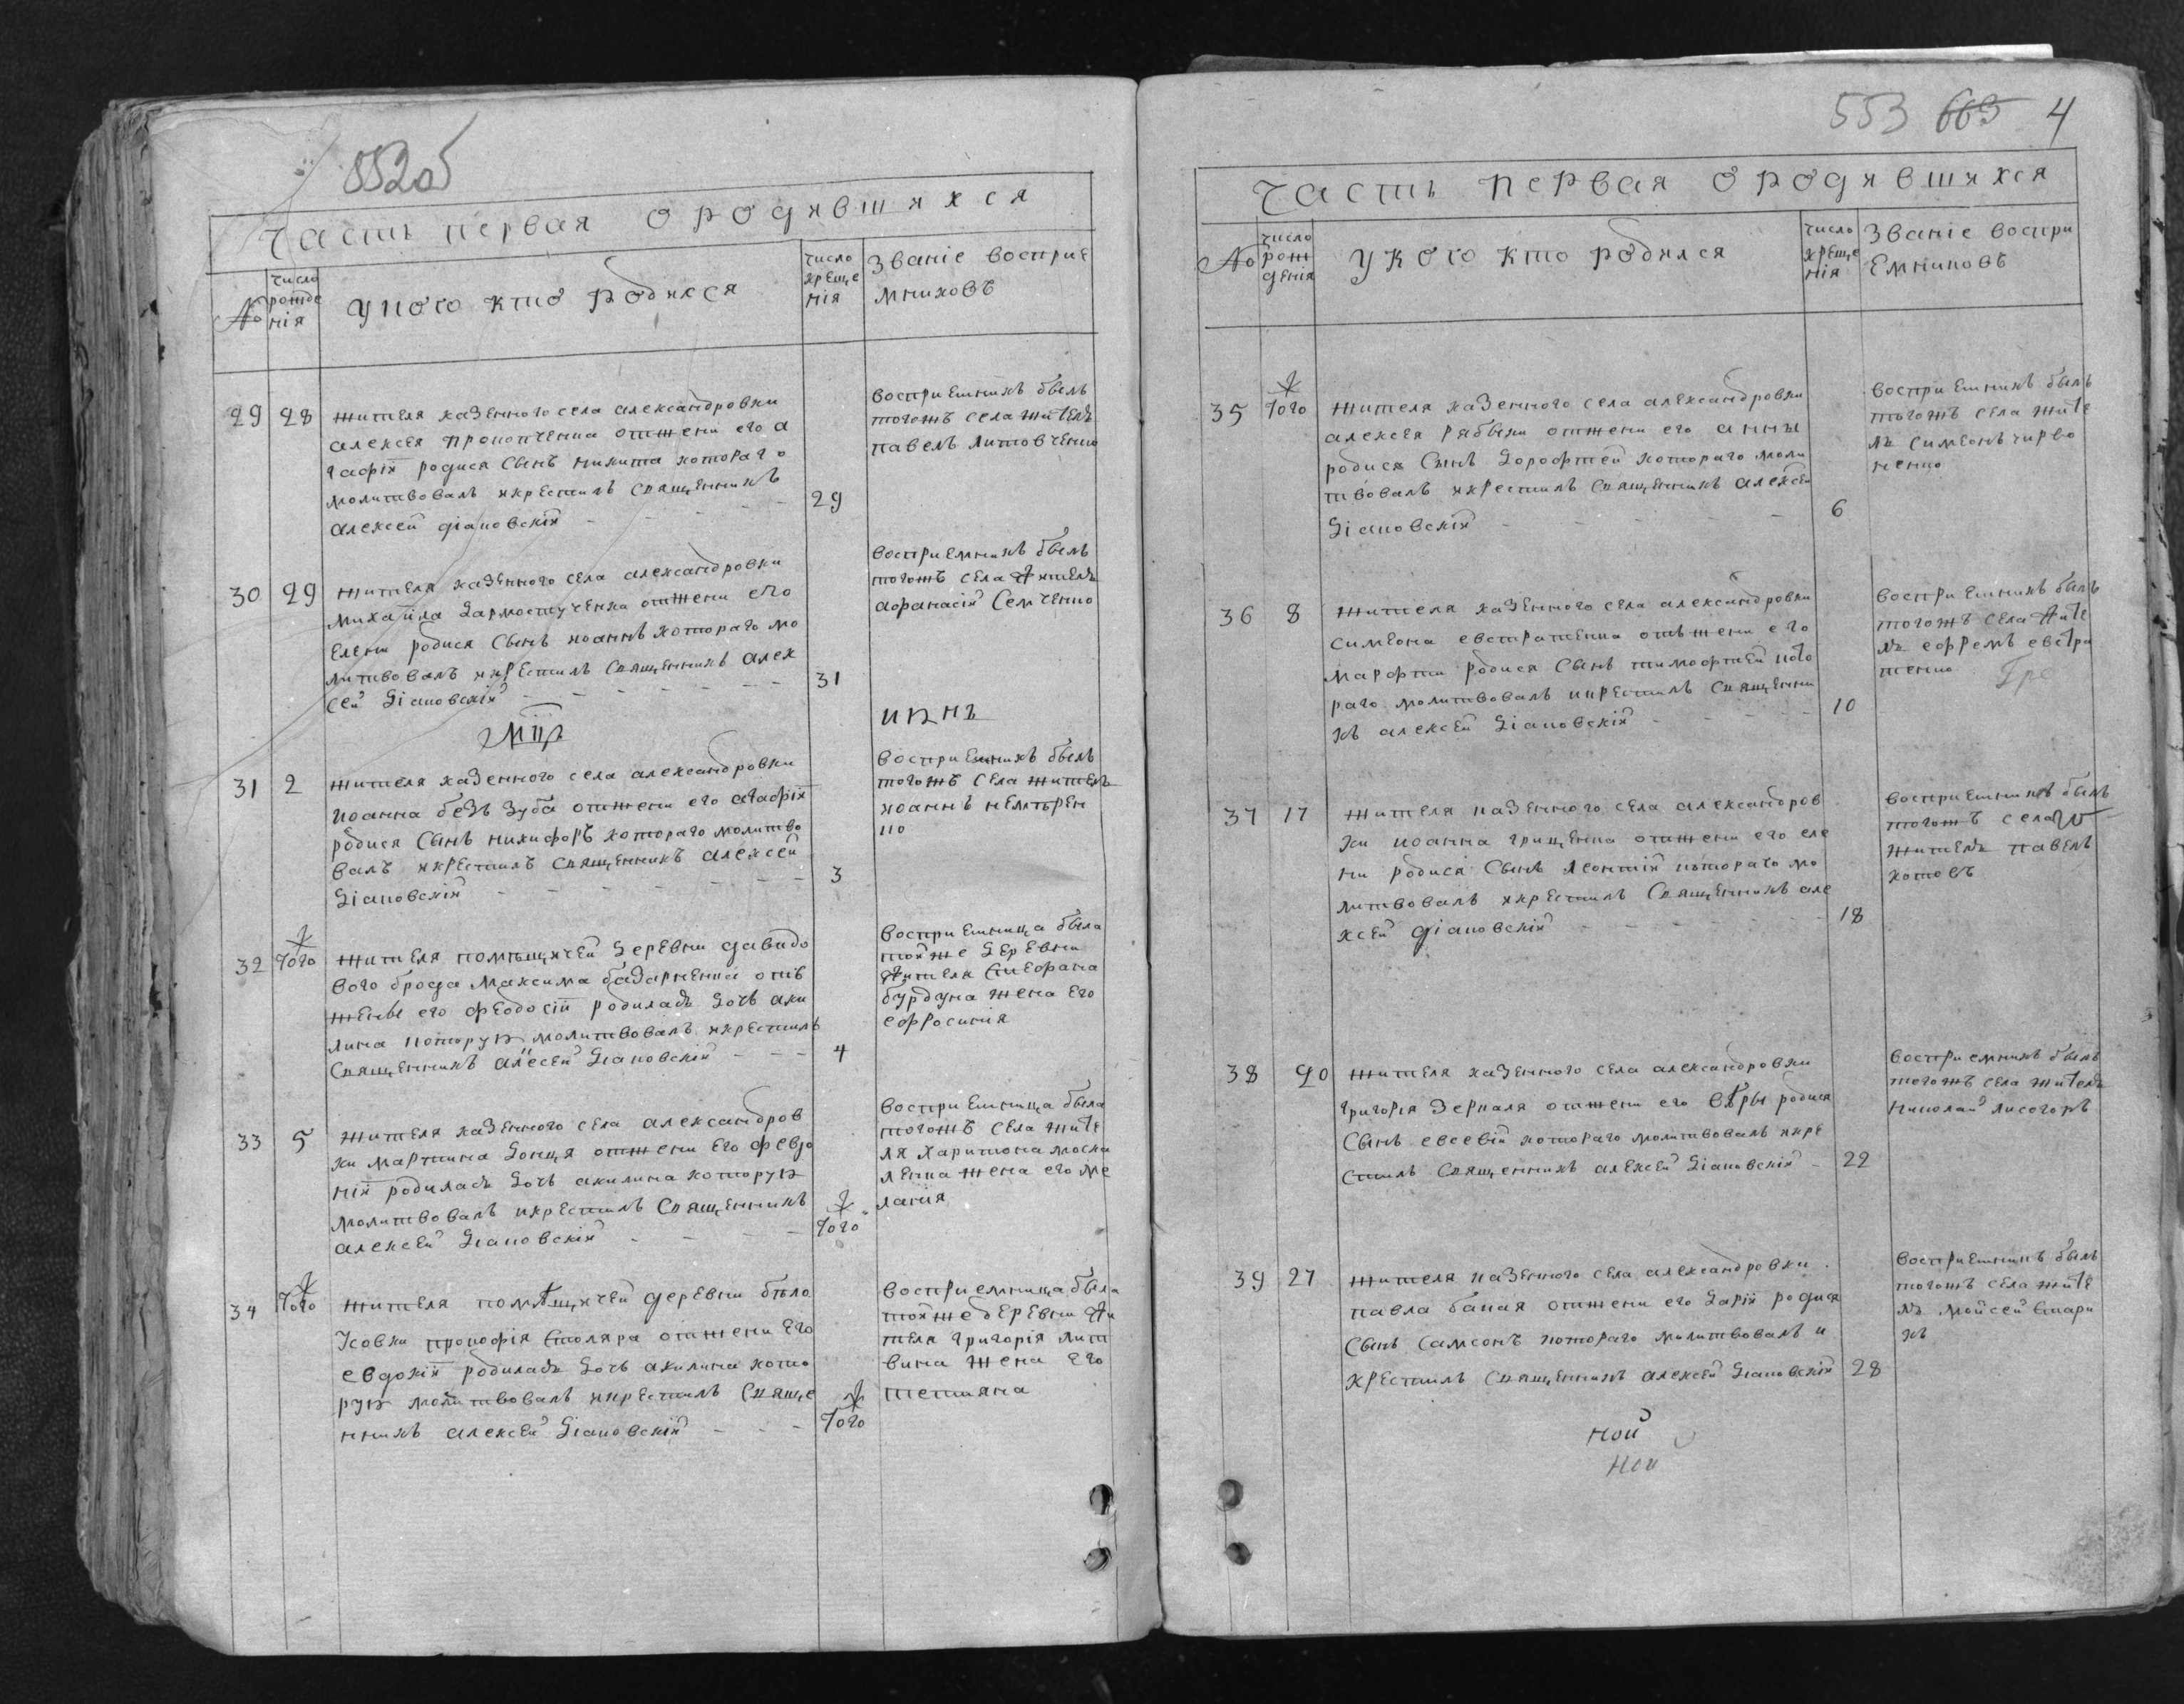 552об
Часть первая о родившихся
№
число рожде нія
У кого кто родился
число креще нія
Званіе восприе мниковъ
29 28
жителя казенного села александровки
алексея прокопченка отжени его а
гафіи родися сынъ никита котораго
молитвовалъ икрестилъ священникъ
алексей діановскій
29
восприемникъ былъ
тогожъ села житель
павелъ литовченко
30 29
жителя казенного села александровки
михаила отжени его
елени родися сынъ иоаннъ котораго мо
литвовалъ икрестилъ священникъ алек
сей діановскій
31
восприемникъ былъ
тогожъ села житель
афанасій семченко
31 2
жителя казенного села александровки
иоанна безъ зуба отжени его агафіи
родися сынъ никифоръ котораго молитво
валъ икрестилъ священникъ алексей
діановскій
3
восприемникъ былъ
тогожъ села житель
иоаннъ
32 того
жителя помѣщичей деревни давидо
вого брода максима базарненка отъ
жены его феодосіи родиласъ дочь аки
лина которую молитвовалъ икрестилъ
священникъ алексей діановскій
4
восприемница была
тойже деревни
жителя стефана
бурдуна жена его
ефросинія
33 5
жителя казенного села александров
ки мартина донця отжени его февро
ніи родиласъ дочь акилина которую
молитвовалъ икрестилъ священникъ
алексей діановскій
того
восприемница была
тогожъ села жите
ля харитона моска
ленка жена его ме
ланія
34 того
жителя помѣщичей деревни бѣло
усовки прокофія столяра отжени его
евдокіи родиласъ дочь акилина кото
рую молитвовалъ икрестилъ свяще
нникъ алексей діановскій
того
восприемница была
тойже деревни жи
теля григорія лит
вина жена его
тетияна
553 663 4
Часть первая о родившихся
№
число рож денія
У кого кто родился
число креще нія
Званіе воспри емниковъ
35 того
жителя казенного села александровки
алексея рябыки отжени его анны
родися сынъ дорофтей котораго моли
твовалъ икрестилъ священникъ алексей
діановскій
6
восприемникъ былъ
тогожъ села жите
ль симеонъ черво
ненко
36 8
жителя казенного села александровки
симеона евстратенка отъжени его
марфти родися сынъ тимофтей кото
раго молитвовалъ икрестилъ священни
къ алексей діановскій
10
восприемникъ былъ
тогожъ села жите
ль ефремъ евстра
тенко
37 17
жителя казенного села александров
ки иоанна грищенка отжени его еле
ни родися сынъ леонтій котораго мо
литвовалъ икрестилъ священникъ але
ксей діановскій
18
восприемникъ былъ
тогожъ села
житель павелъ
котовъ
38 20
жителя казенного села александровки
григорія зеркаля отжени его вѣры родися
сынъ евсевій котораго молитвовалъ икре
стилъ священникъ алексей діановскій
22
восприемникъ былъ
тогожъ села житель
николай лисогоръ
39 27
жителя казенного села александровки
павла бакая отжени его даріи родися
сынъ самсонъ котораго молитвовалъ и
крестилъ священникъ алексей діановскій
28
восприемникъ былъ
тогожъ села жите
ль мойсей стари
къ
ной